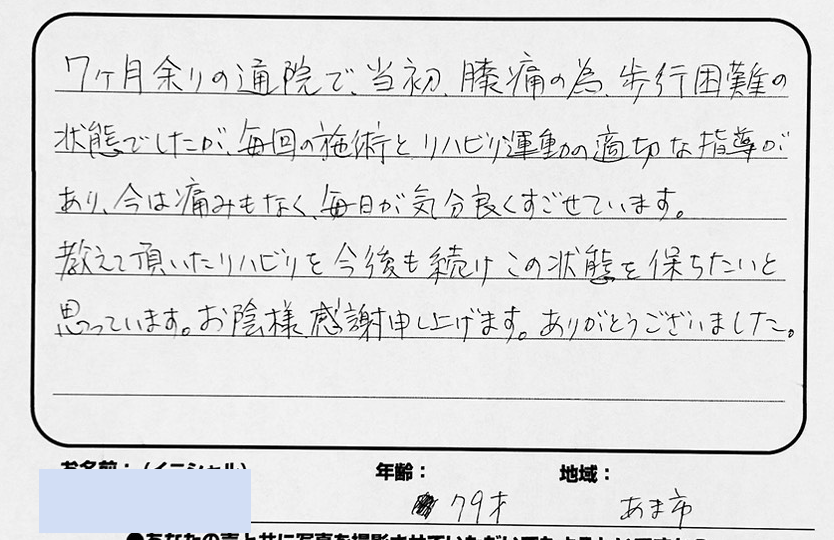 7ヶ月余りの通院で、当初、膝痛の為、歩行困難の
状態でしたが、毎回の施術とリハビリ運動の適切な指導が
あり、今は痛みもなく、毎日が気分良くすごせています。
教えて頂いたリハビリを今後も続けこの状態を保ちたいと
思っています。お陰様、感謝申し上げます。ありがとうございました。
お名前：（イニシャル） 年齢： 地域：
79才 あま市